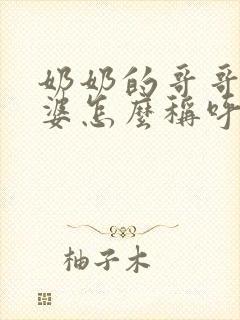 奶奶的哥哥
婆怎麼稱呼
柚子木